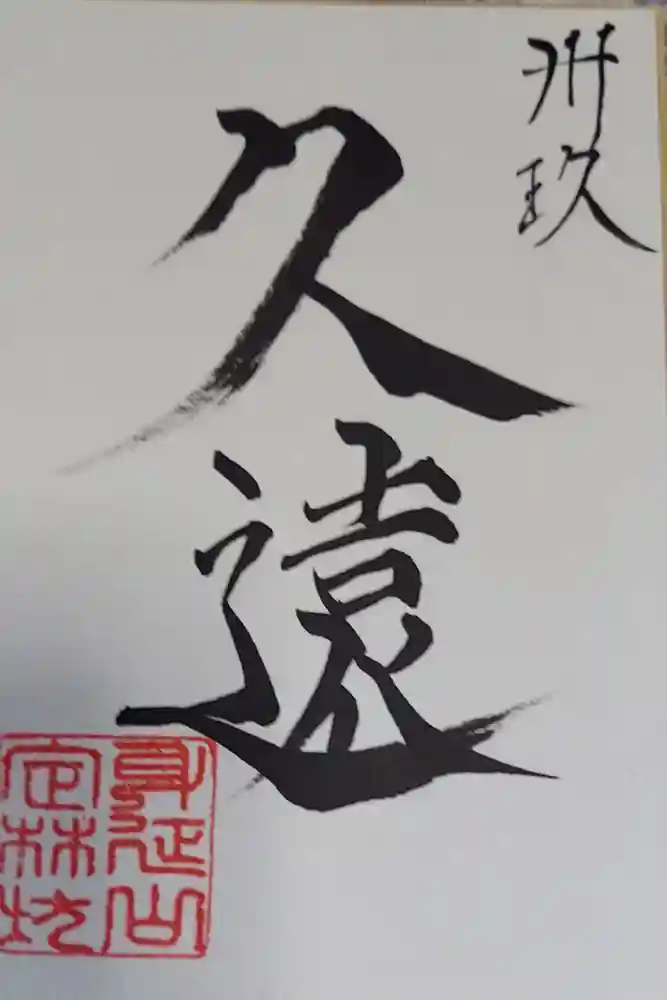 卅玖
久遠
身延山
定林坊